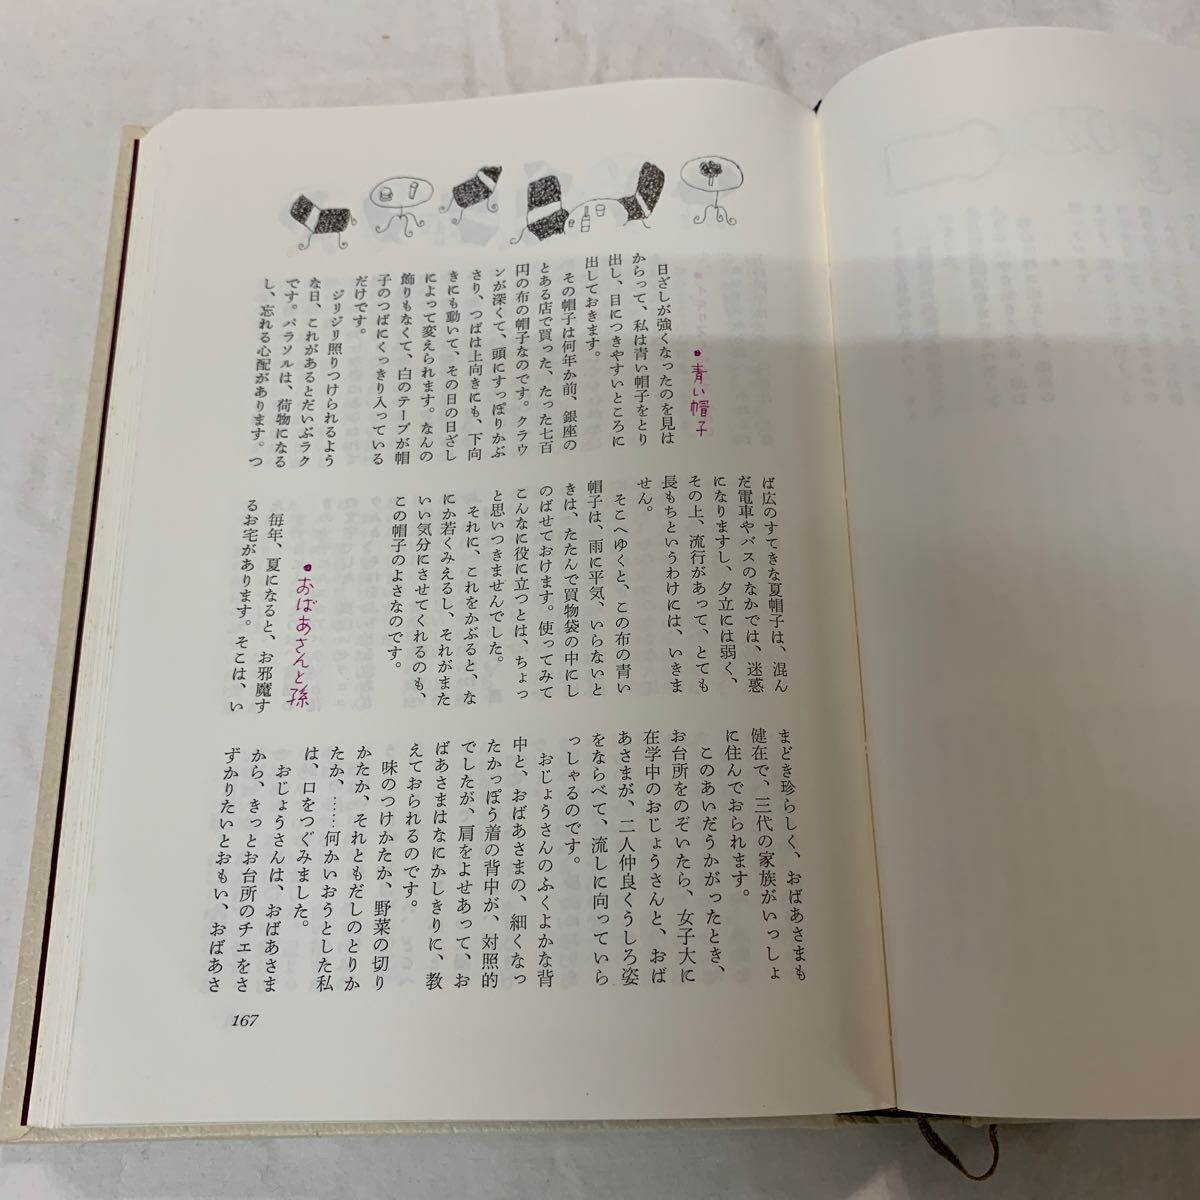 ・青い帽子
日ざしが強くなったのを見は
からって、私は青い帽子をとり
出し、目につきやすいところに
出しておきます。
その帽子は何年か前、銀座の
とある店で買った、たった七百
円の布の帽子なのです。クラウ
ンが深くて、頭にすっぽりかぶ
さり、つばは上向きにも、下向
きにも動いて、その日の日ざし
によって変えられます。なんの
飾りもなくて、白のテープが帽
子のつばにくっきり入っている
だけです。
ジリジリ照りつけられるよう
な日、これがあるとだいぶラク
です。パラソルは、荷物になる
し、忘れる心配があります。つ
ば広のすてきな夏帽子は、混ん
だ電車やバスのなかでは、迷惑
になりますし、夕立には弱く、
その上、流行があって、とても
長もちというわけには、いきま
せん。
そこへゆくと、この布の青い
帽子は、雨に平気、いらないと
きは、たたんで買物袋の中にし
のばせておけます。使ってみて
こんなに役に立つとは、ちょっ
と思いつきませんでした。
それに、これをかぶると、な
にか若くみえるし、それがまた
いい気分にさせてくれるのも、
この帽子のよさなのです。
・おばあさんと孫
毎年、夏になると、お邪魔す
るお宅があります。そこは、い
まどき珍らしく、おばあさまも
健在で、三代の家族がいっしょ
に住んでおられます。
このあいだうかがったとき、
お台所をのぞいたら、女子大に
在学中のおじょうさんと、おば
あさまが、二人仲良くうしろ姿
をならべて、流しに向っていら
っしゃるのです。
おじょうさんのふくよかな背
中と、おばあさまの、細くなっ
たかっぽう着の背中が、対照的
でしたが、肩をよせあって、お
ばあさまはなにかしきりに、教
えておられるのです。
味のつけかたか、野菜の切り
かたか、それともだしのとりか
たか、……何かいおうとした私
は、口をつぐみました。
おじょうさんは、おばあさま
から、きっとお台所のチエをさ
ずかりたいとおもい、おばあさ
167